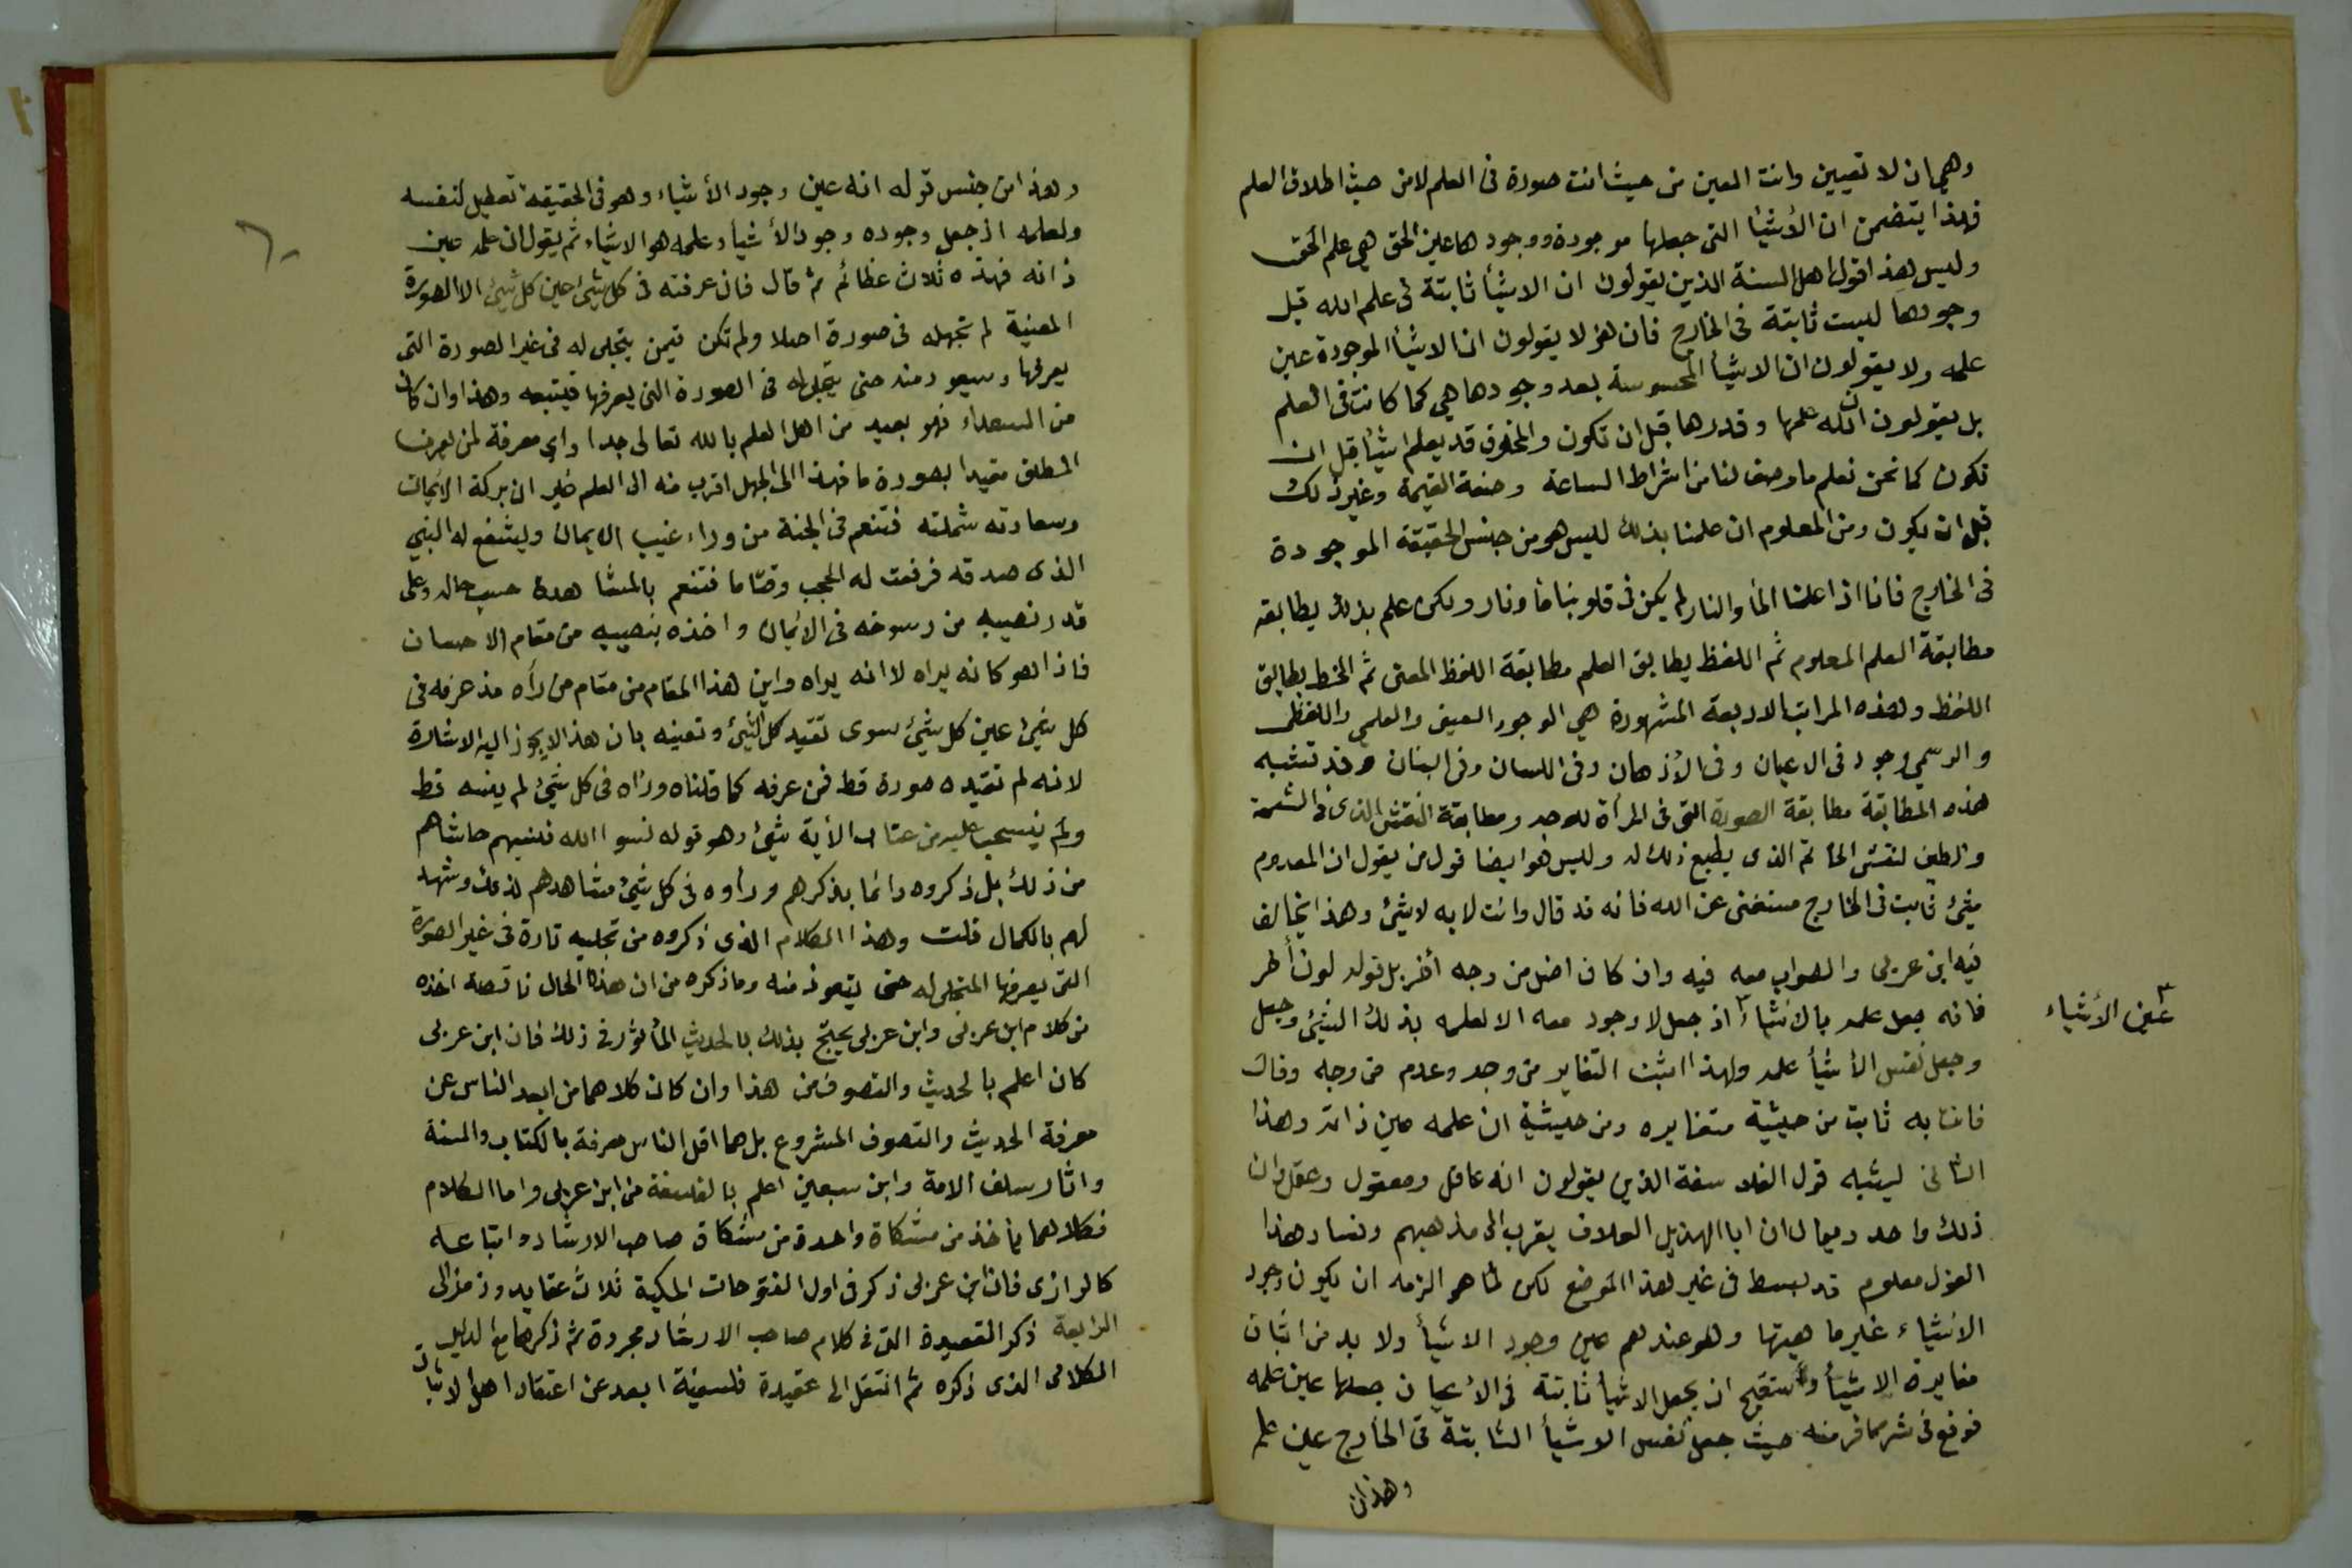 وهي ان لا تعيين وانت العين من حيث انت صورة فى العلم لا من حيث اطلاق العلم
فهذا يتضمن ان الأشيأ التى جعلها موجودة ووجودها عين الحق هي علم الحق
وليس هذا قول اهل السنة الذين يقولون ان الاشيأ ثابتة فى علم الله قبل
وجودها ليست ثابتة فى الخارج فان هؤلا يقولون ان الاشيأ الموجودة عين
علمه ولا يقولون ان الاشيأ المحسوسة بعد وجودها هي كما كانت فى العلم
بل يقولون ان الله علمها وقدرها قبل ان تكون والمخلوق قد يعلم اشيأ قبل ان
تكون كما نحن نعلم ما وصف لنا من اشراط الساعة وصفة القيمة وغير ذلك
قبل ان يكون ومن المعلوم ان علمنا بذلك ليس هو من جنس الحقيقة الموجودة
فى الخارج فانا اذا علمنا المأ والنار لم يكن فى قلوبنا مأ ونار ولكن علم بذلك يطابقه
مطابقة العلم المعلوم ثم اللفظ يطابق العلم مطابقة اللفظ المعنى ثم الخط يطابق
اللفظ وهذه المراتب الاربعة المشهورة هي الوجود العينى والعلمي واللفظى
والرسمي وجود فى الاعيان وفى الأذهان وفى اللسان وفى البنان وقد تشبه
هذه المطابقة مطابقة الصورة التى فى المرأة للوجه ومطابقة النقش الذى فى الشمعة
والطين لنقش الخاتم الذى يطبع ذلك له وليس هو ايضا قول من يقول ان المعدوم
شئ ثابت فى الخارج مستغنى عن الله فانه قد قال وانت لا به لا شئ وهذا يخالف
فيه ابن عربى والصواب معه فيه وان كان اضل من وجه أخر بل قوله لون أطر
فانه جعل علمه بالأشياء اذ جعل لا وجود معه الا لعلمه بذلك الشئ وجعل
عين الأشياء
وجعل نفس الأشيأ علمه ولهذا اثبت التغاير من وجه وعدم من وجه وقال
فانت به ثابت من حيثية متغايره ومن حيثية ان علمه عين ذاته وهذا
الثانى يشبه قول الفلاسفة الذين يقولون انه عاقل ومعقول وعقل وان
ذلك واحد ويقال ان ابا الهذيل العلاف يقرب الى مذهبهم وفساد هذا
القول معلوم قد بسط فى غير هذا الموضع لكن لما هو الزمه ان يكون وجود
الاشياء غير ماهيتها وهو عندهم عين وجود الاشيأ ولا بد من اثبات
مغايرة الاشيأ واستقبح ان يجعل الاشيأ ثابتة فى الأعيان جعلها عين علمه
فوقع فى شر مما فر منه حيث جعل نفس الاشيأ الثابتة فى الخارج عين علم
وهذا
٦٠
وهذا من جنس قوله انه عين وجود الأشياء وهو فى الحقيقة تعطيل لنفسه
ولعلمه اذ جعل وجوده وجود الأشيأ وعلمه هو الاشياء ثم يقول ان علمه عين
ذاته فهذه ثلاث عظائم ثم قال فان عرفته فى كل شئ عين كل شئ الا الصورة
المعنية لم تجهله فى صورة اصلا ولم تكن فيمن يتجلى له فى غير الصورة التى
يعرفها ويتعوذ منه حتى يتجلى له فى الصورة التى يعرفها فيتبعه وهذا وان كان
من السعداء فهو بعيد من اهل العلم بالله تعالى جدا واي معرفة لمن يعرف
المطلق مقيدا بصورة ما فهذا الى الجهل اقرب منه الى العلم غير ان بركة الايمان
وسعادته شملته فتنعم فى الجنة من وراء غيب الايمان ويشفع له النبي
الذى صدقه فرفعت له الحجب وقتا ما فتنعم بالمشاهدة حسب حاله وعلى
قدر نصيبه من رسوخه فى الايمان واخذه بنصيبه من مقام الاحسان
فاذا هو كانه يراه لا انه يراه واين هذا المقام من مقام من رأه مذ عرفه فى
كل شئ عين كل شئ سوى تقيد كل الشئ وتعينه بان هذا لا يجوز اليه الاشارة
لانه لم تقيده صورة قط فمن عرفه كما قلناه ورأه فى كل شئ لم ينسه قط
ولم ينسحب عليه من عتاب الأية شئ وهو قوله نسوا الله فنسيهم حاشاهم
من ذلك بل ذكروه دائما بذكرهم ورأوه فى كل شئ مشاهدهم لذلك وشهد
لهم بالكمال قلت وهذا الكلام الذى ذكروه من تجليه تارة فى غير الصورة
التى يعرفها المتجلى له حتى يتعوذ منه وما ذكره من ان هذه الحال ناقصة اخذه
من كلام ابن عربى وابن عربى يحتج بذلك بالحديث المأثور فى ذلك فان ابن عربى
كان اعلم بالحديث والتصوف من هذا وان كان كلاهما من ابعد الناس عن
معرفة الحديث والتصوف المشروع بل هما اقل الناس معرفة بالكتاب والسنة
واثار سلف الامة وابن سبعين اعلم بالفلسفة من ابن عربى واما الكلام
فكلاهما يأخذ من مشكاة واحدة من مشكاة صاحب الارشاد واتباعه
كالرازى فان ابن عربى ذكر فى اول الفتوحات المكية ثلاث عقايد ورمز الى
الرابعة ذكر القصيدة التى فى كلام صاحب الارشاد مجردة ثم ذكرها مع الدليل
الكلامى الذى ذكره ثم انتقل الى عقيدة فلسفية ابعد عن اعتقاد اهل الاثبات